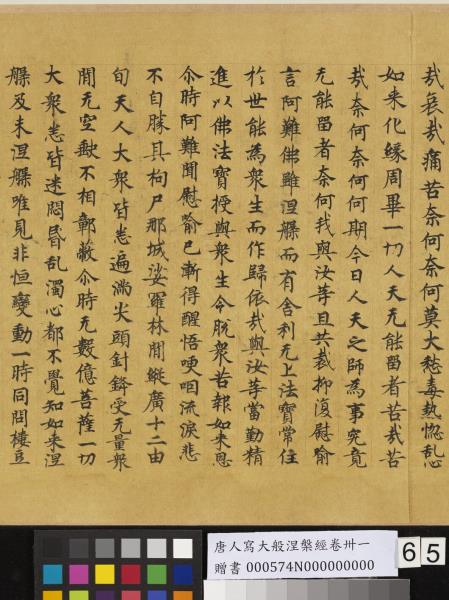 哉哀哉痛苦奈何奈何莫大愁毒熱惱乱心
如来化縁周畢一切人天无能留者苦哉苦
哉奈何奈何何期今日人天之師為事究竟
无能留者奈何我與汝等且共裁抑復慰喻
言阿難佛雖涅槃而有舍利无上法寶常住
於世能為衆生而作歸依我與汝等當勤精
進以佛法寶授與衆生令脫衆苦報如来恩
尒時阿難聞慰喻已漸得醒悟哽咽流淚悲
不自勝其拘尸那城娑羅林間縱廣十二由
旬天人大衆皆悉遍滿尖頭針鋒受无量衆
間无空缺不相鄣蔽尒時无數億菩薩一切
大衆悉皆迷悶昏乱濁心都不覺知如来涅
槃及未涅槃唯見非恒變動一時同問樓豆
唐人寫大般涅槃經卷卅一
贈書 000574N000000000
65